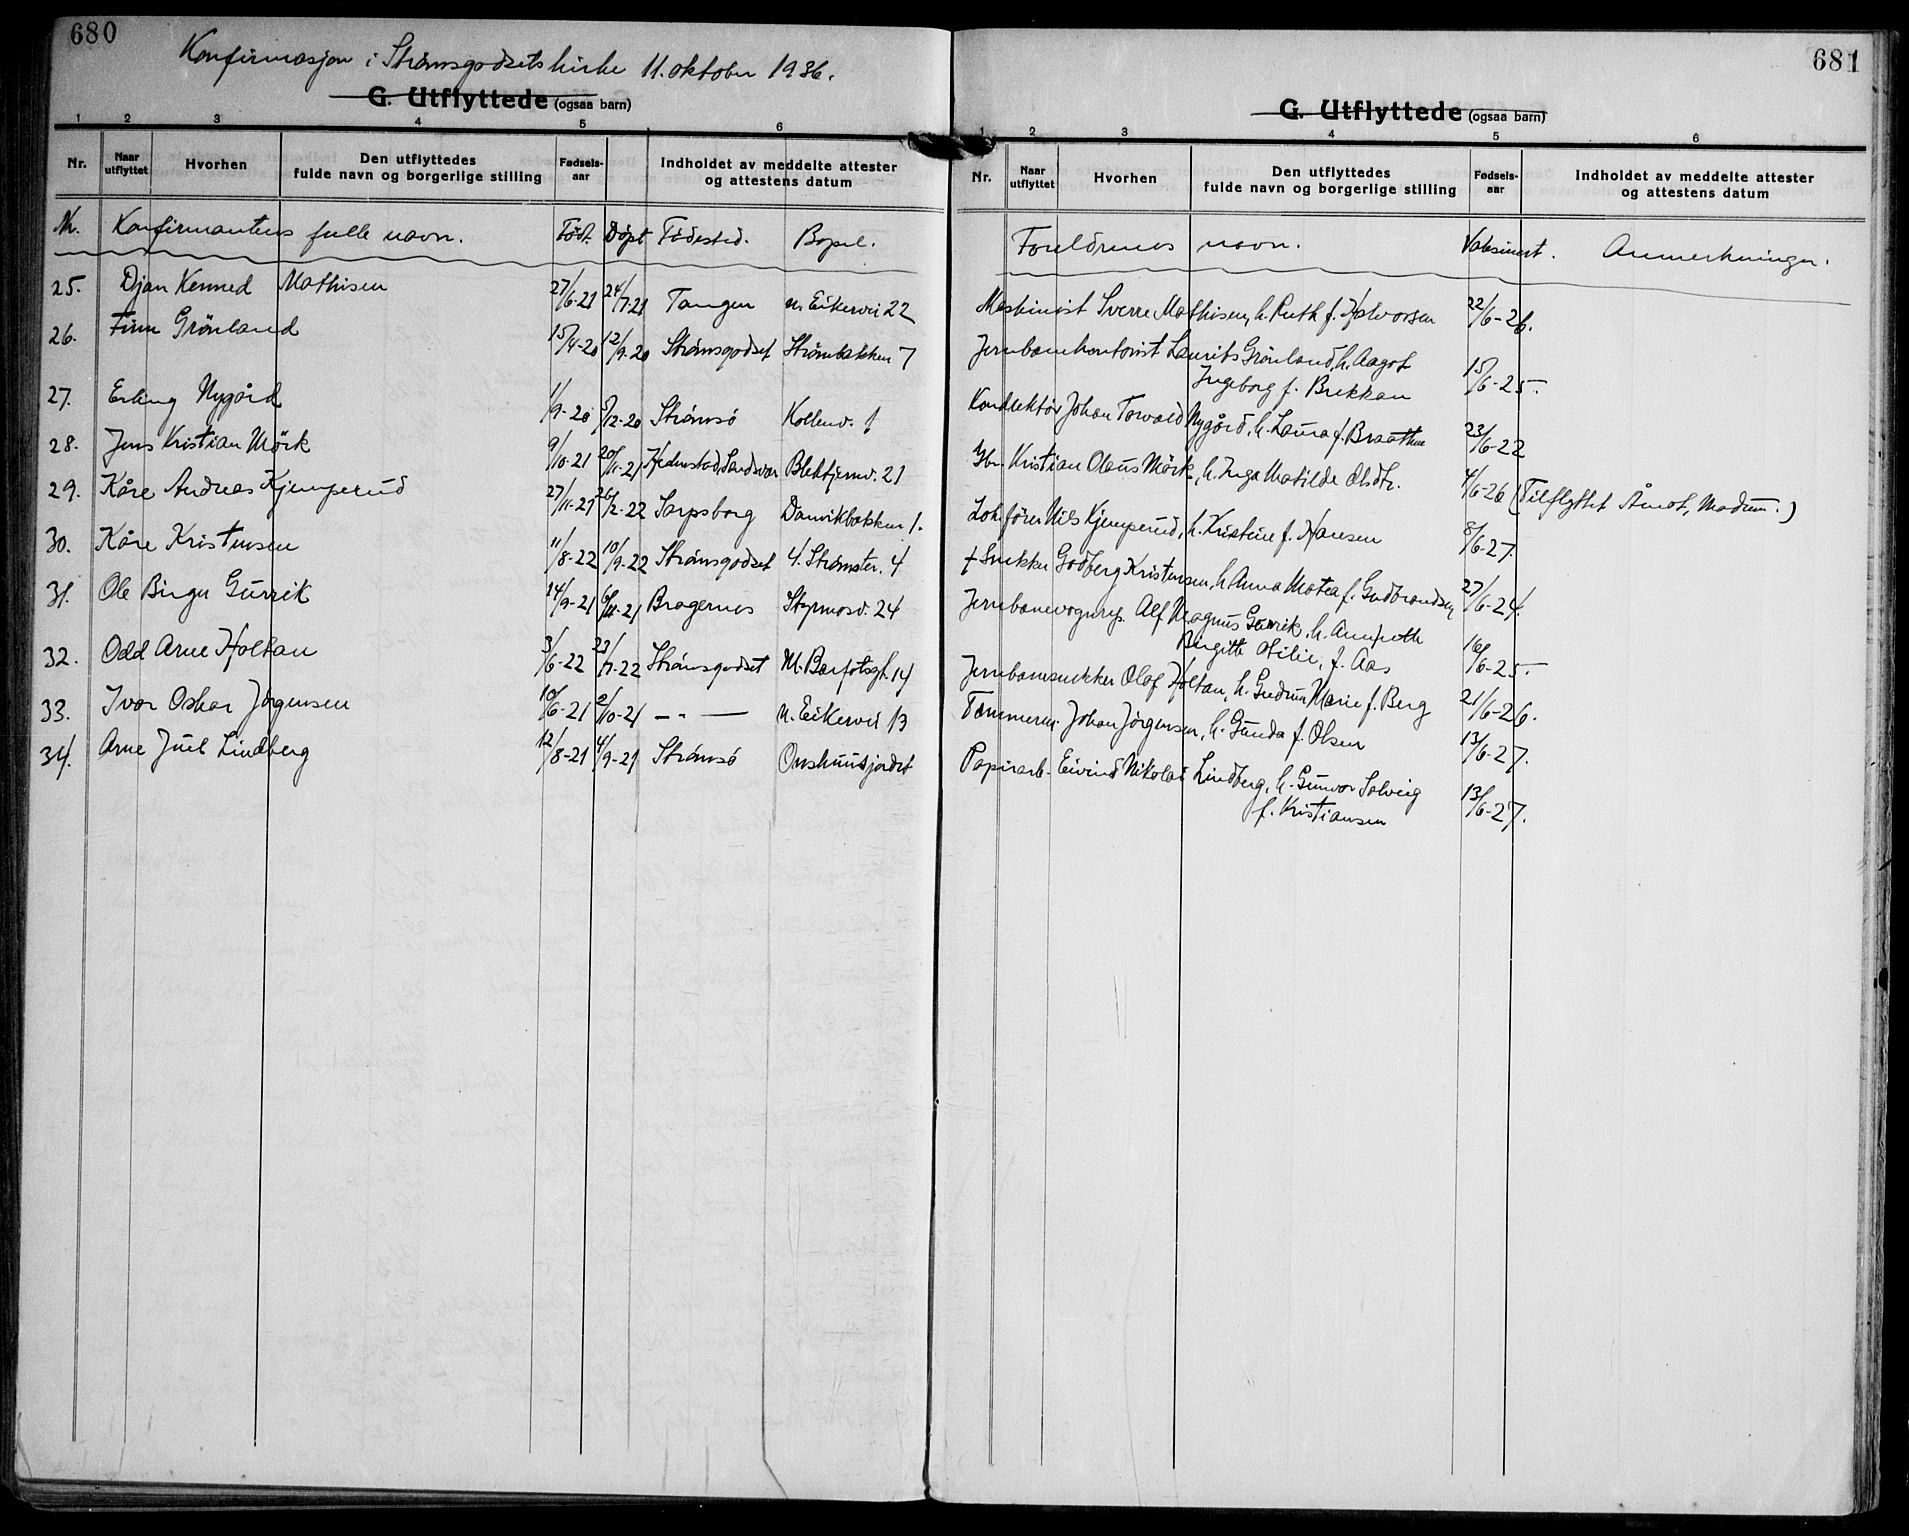 680
Konfirmasjon i Strømsgodset kirke 11. oktober 1936.
G. Utflyttede (ogsaa barn)
1 2 3 4 5 6
Nr. Naar utflyttet Hvorhen Den utflyttedes fulde navn og borgerlige stilling Fødsels-aar Indholdet av meddelte attester og attestens datum
Nr. Konfirmantens fulle navn. Född. Döpt Födested. Bopel.
25. Djan Kenned Mathisen 27/6-21 24/7-21 Tangen n. Eikervei 22
26. Finn Grönland 15/4-20 12/9-20 Strömsgodset Strömbakken 7
27. Erling Nygård 1/9-20 5/12-20 Strömsö Kollenv. 1
28. Jens Kristian Mörk 9/10-21 20/11-21 Hedenstad, Sandsvær Blektjernv. 21
29. Kåre Andreas Kjemperud 27/11-21 26/2-22 Sarpsborg Danvikbakken 1.
30. Kåre Kristensen 11/8-22 10/9-22 Strömsgodset 4. Strömster. 4
31. Ole Birger Gurrik 14/9-21 6/11-21 Bragernes Styrmosv. 24
32. Odd Arne Holtan 3/6-22 23/7-22 Strömsgodset M. Barfotsgt. 14
33. Ivar Oskar Jörgensen 10/6-21 2/10-21 — " — n. Eikervei 13
34. Arne Juel Lindberg 12/8-21 4/9-21 Strömsö Onshuusjordet
681
G. Utflyttede (ogsaa barn)
1 2 3 4 5 6
Nr. Naar utflyttet Hvorhen Den utflyttedes fulde navn og borgerlige stilling Fødsels-aar Indholdet av meddelte attester og attestens datum
Foreldrenes navn. Vaksinert. Anmerkninger.
Maskinist Sverre Mathisen, h. Ruth f. Halvorsen 22/6-26.
Jernbanekontorist Laurits Grönland, h. Aagot
Ingeborg f. Brekkan 15/6-25.
Konduktör Johan Torvald Nygård, h. Laura f. Braathen 23/6-22
Gbr. Kristian Olaus Mörk, h. Inga Matilde Olsdtr. 4/6-26 (Tilflyttet Åmot, Modum.)
Lok.förer Nils Kjemperud, h. Kristine f. Hansen 8/6-27
† Snekker Godberg Kristensen, h. Anna Matea f. Gudbrandsen 27/6-24.
Jernbanevognrep. Alf Magnus Gurrik, h. Annfreth
Birgitte Otilie, f. Aas 16/6-25
Jernbanesnekker Olaf Holtan, h. Gudrun Marie f. Berg 21/6-26.
Tömmerm. Johan Jörgensen, h. Gunda f. Olsen 13/6-27.
Papirarb. Eivind Nikolai Lindberg, h. Gunvor Solveig
f. Kristiansen 13/6-27.